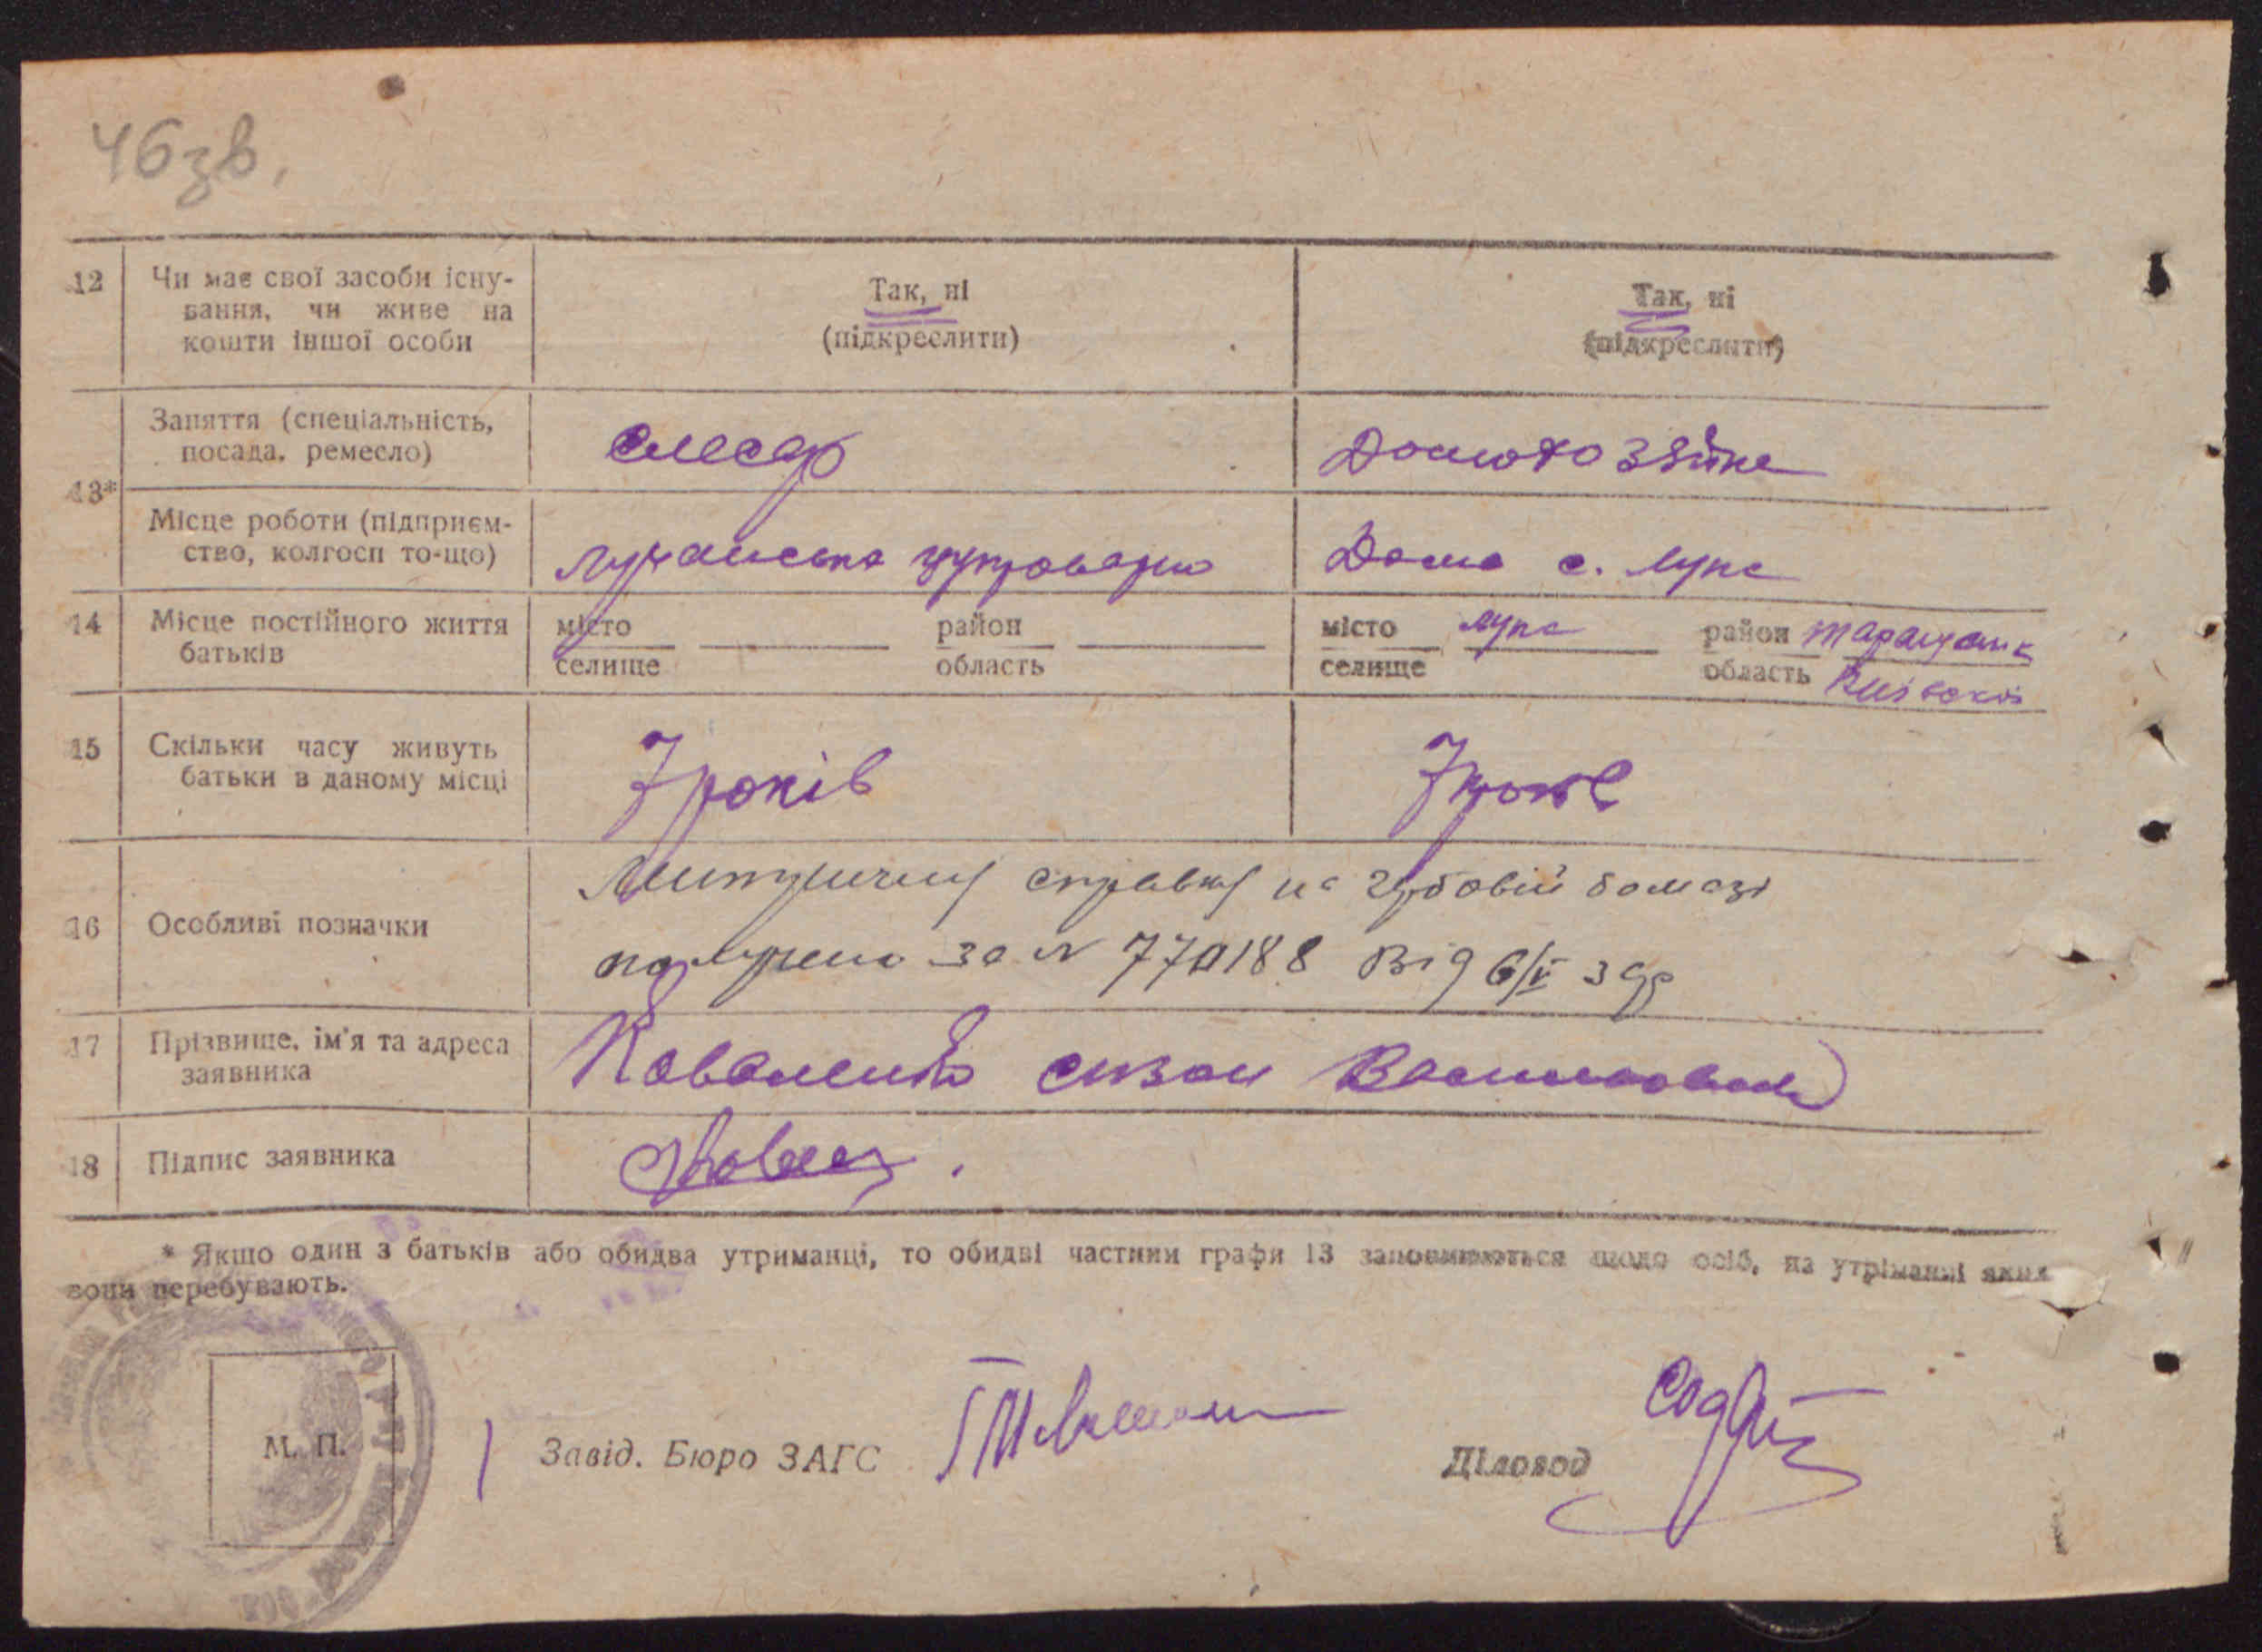 46 зв.
12 Чи має свої засоби існу-
вання, чи живе на
кошти іншої особи
Так, ні
(підкреслити)
Так, ні
(підкреслити)
13*
Заняття (спеціальність,
посада, ремесло)
слесар
Домохозяйка
Місце роботи (підприєм-
ство, колгосп то-що)
Дома с. Лука
14 Місце постійного життя
батьків
місто
селище
район
область
місто Лука
селище
район Таращанськ
область Київської
15 Скільки часу живуть
батьки в даному місці
7 років
7 років
16 Особливі позначки
справку на гербовій бомазі
за N 770188 Від 6/V 39р
17 Прізвище, ім'я та адреса
заявника
Коваленко
18 Підпис заявника
* Якщо один з батьків або обидва утриманці, то обидві частини графи 13 заповнюються щодо осіб, на утріманні яких
вони перебувають.
М. П.
Завід. Бюро ЗАГС
Діловод